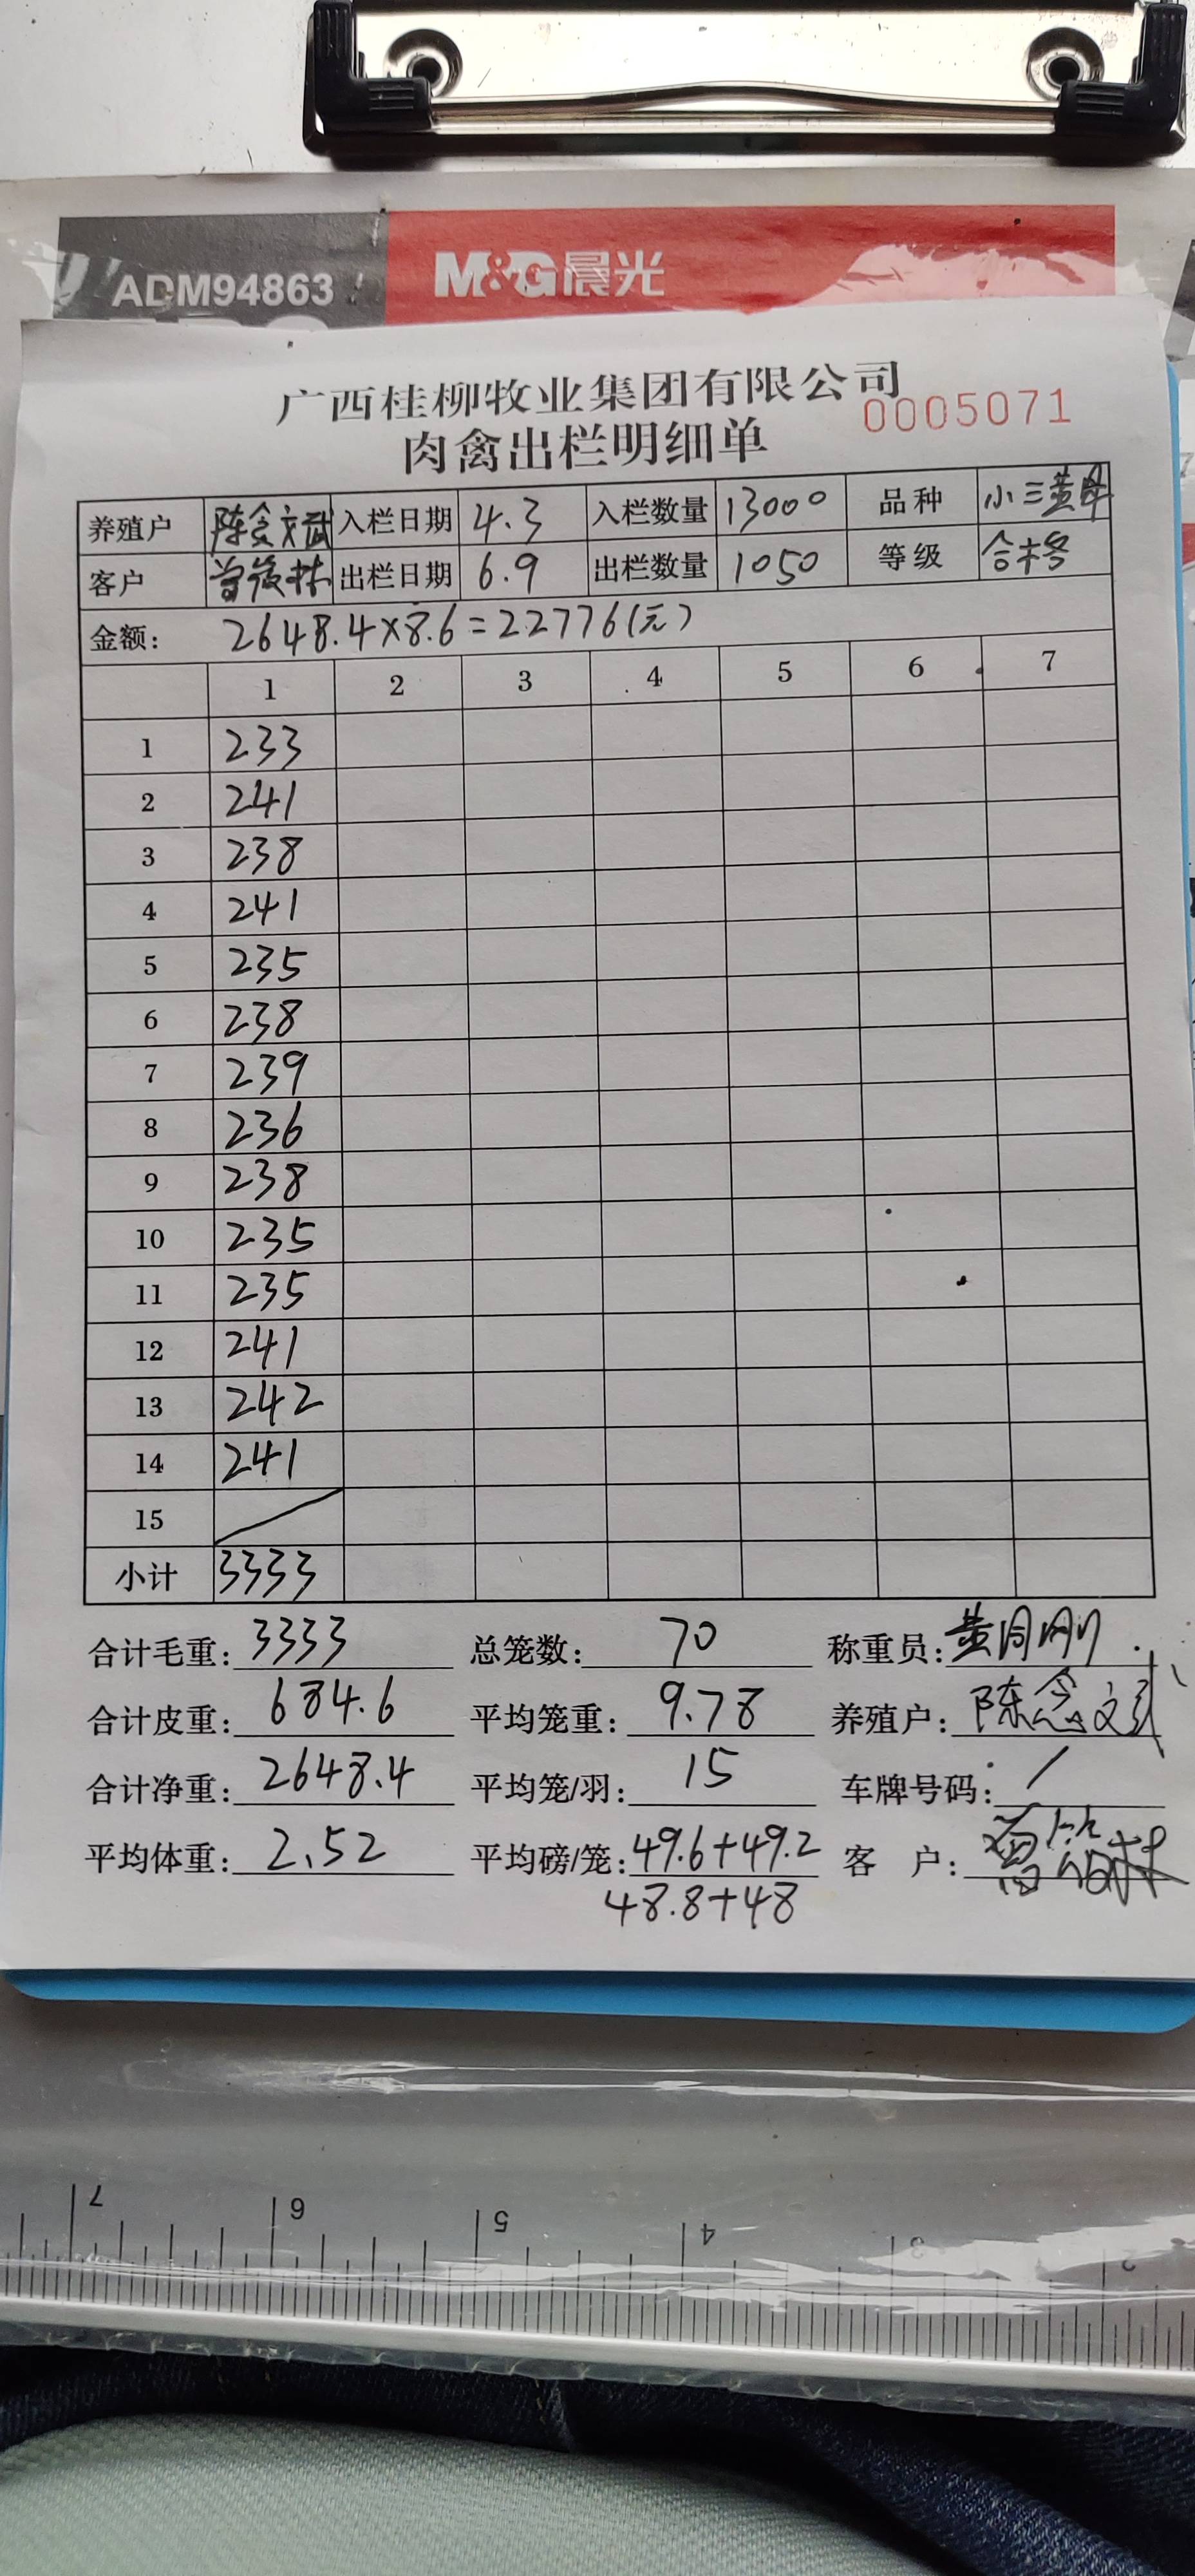 ADM94863 M&G晨光
广西桂柳牧业集团有限公司
0005071
肉禽出栏明细单
养殖户 陈念文武 入栏日期 4.3 入栏数量 13000 品种 小三黄母
客户 曾俊林 出栏日期 6.9 出栏数量 1050 等级 合格
金额: 2648.4×8.6=22776(元)
1 2 3 4 5 6 7
1 233
2 241
3 238
4 241
5 235
6 238
7 239
8 236
9 238
10 235
11 235
12 241
13 242
14 241
15
小计 3333
合计毛重: 3333 总笼数: 70 称重员:
合计皮重: 684.6 平均笼重: 9.78 养殖户: 陈念文武
合计净重: 2648.4 平均笼/羽: 15 车牌号码: /
平均体重: 2.52 平均磅/笼: 49.6+49.2 客 户:
48.8+48
7 6 5 4 3 2